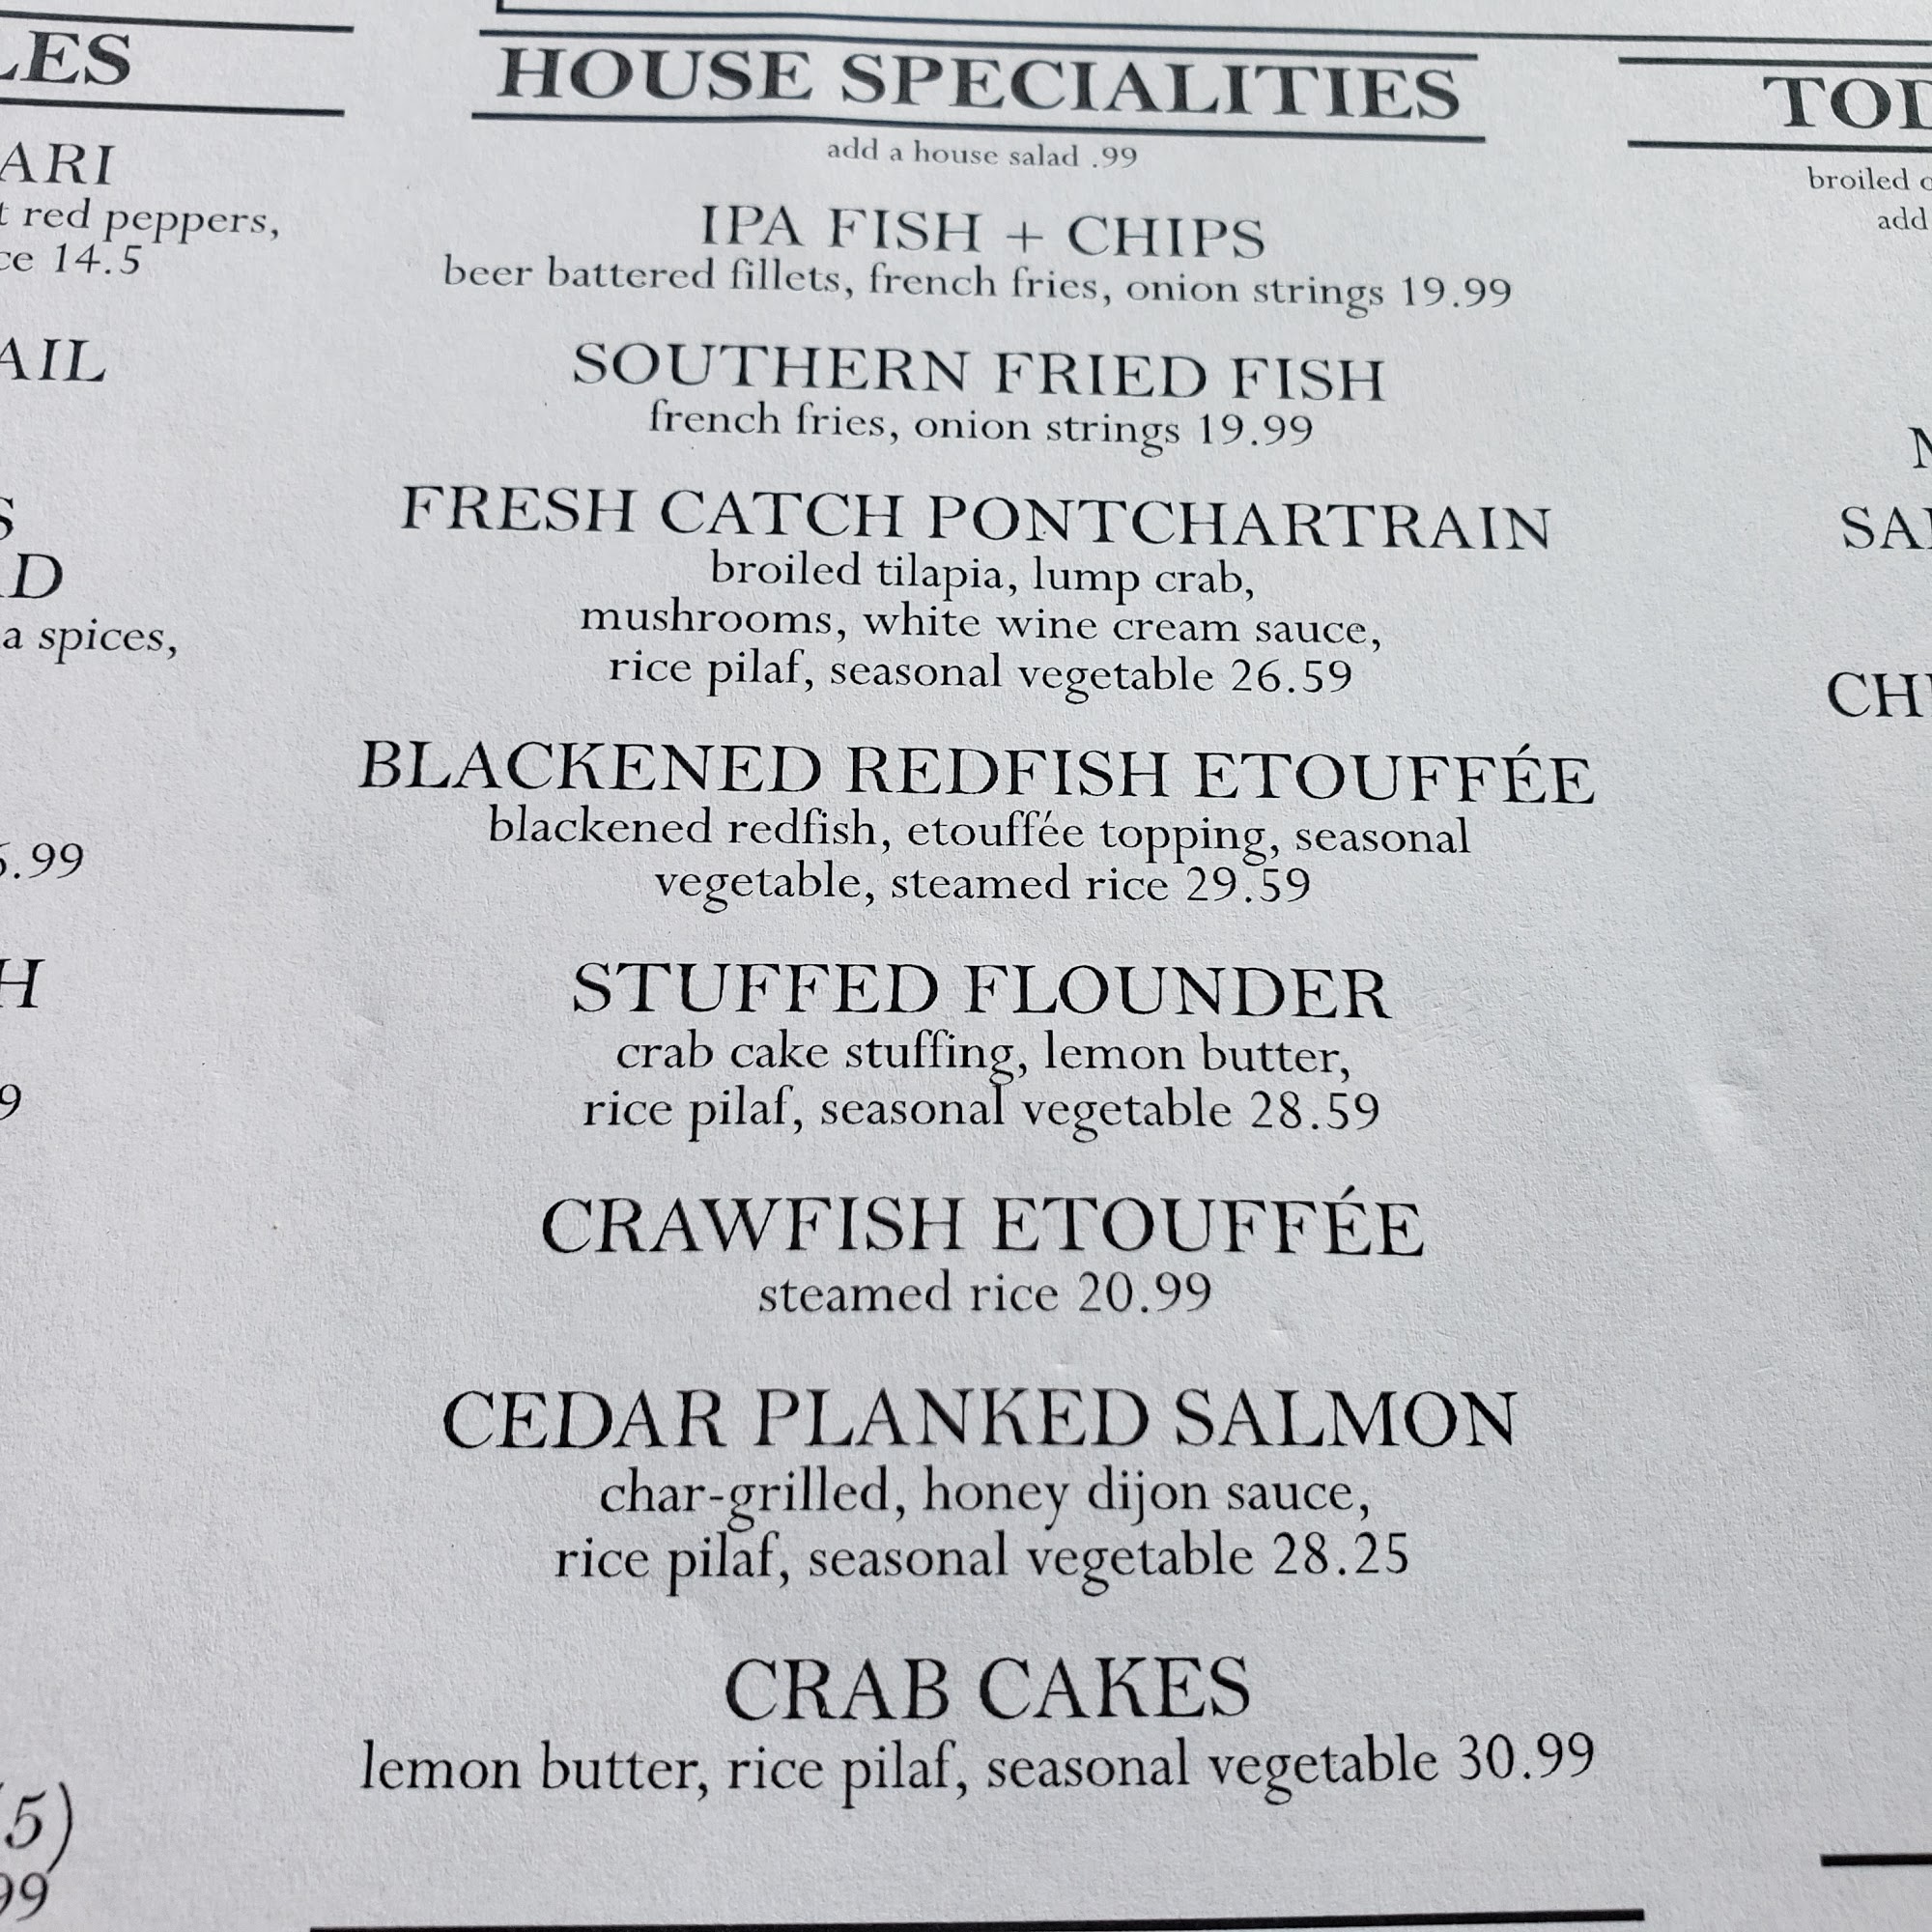 LES
ARI
red peppers,
ce 14.5
AIL
S
D
a spices,
.99
H
9
5)
99
HOUSE SPECIALITIES
add a house salad .99
IPA FISH + CHIPS
beer battered fillets, french fries, onion strings 19.99
SOUTHERN FRIED FISH
french fries, onion strings 19.99
FRESH CATCH PONTCHARTRAIN
broiled tilapia, lump crab,
mushrooms, white wine cream sauce,
rice pilaf, seasonal vegetable 26.59
BLACKENED REDFISH ETOUFFÉE
blackened redfish, etouffée topping, seasonal
vegetable, steamed rice 29.59
STUFFED FLOUNDER
crab cake stuffing, lemon butter,
rice pilaf, seasonal vegetable 28.59
CRAWFISH ETOUFFÉE
steamed rice 20.99
CEDAR PLANKED SALMON
char-grilled, honey dijon sauce,
rice pilaf, seasonal vegetable 28.25
CRAB CAKES
lemon butter, rice pilaf, seasonal vegetable 30.99
TOD
broiled
add
SA
CH